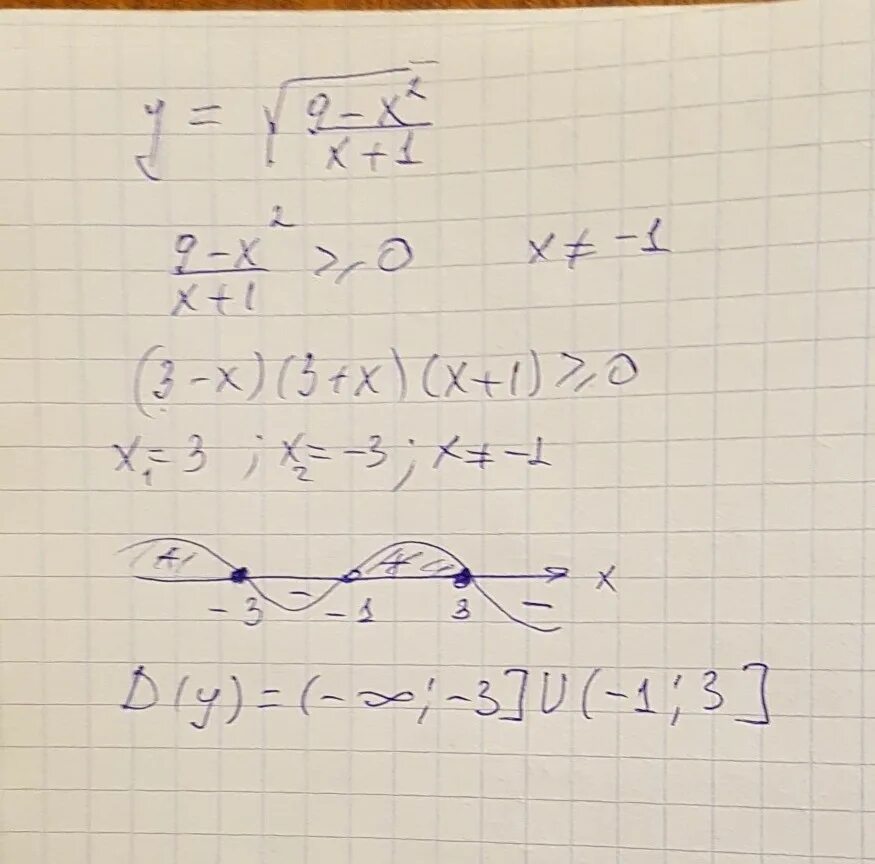 y = √((9-x²)/(x+1))
(9-x²)/(x+1) ≥ 0 x ≠ -1
(3-x)(3+x)(x+1) ≥ 0
x₁=3 ; x₂=-3 ; x≠-1
+ - + - x
-3 -1 3
D(y)=(-∞;-3]∪(-1;3]